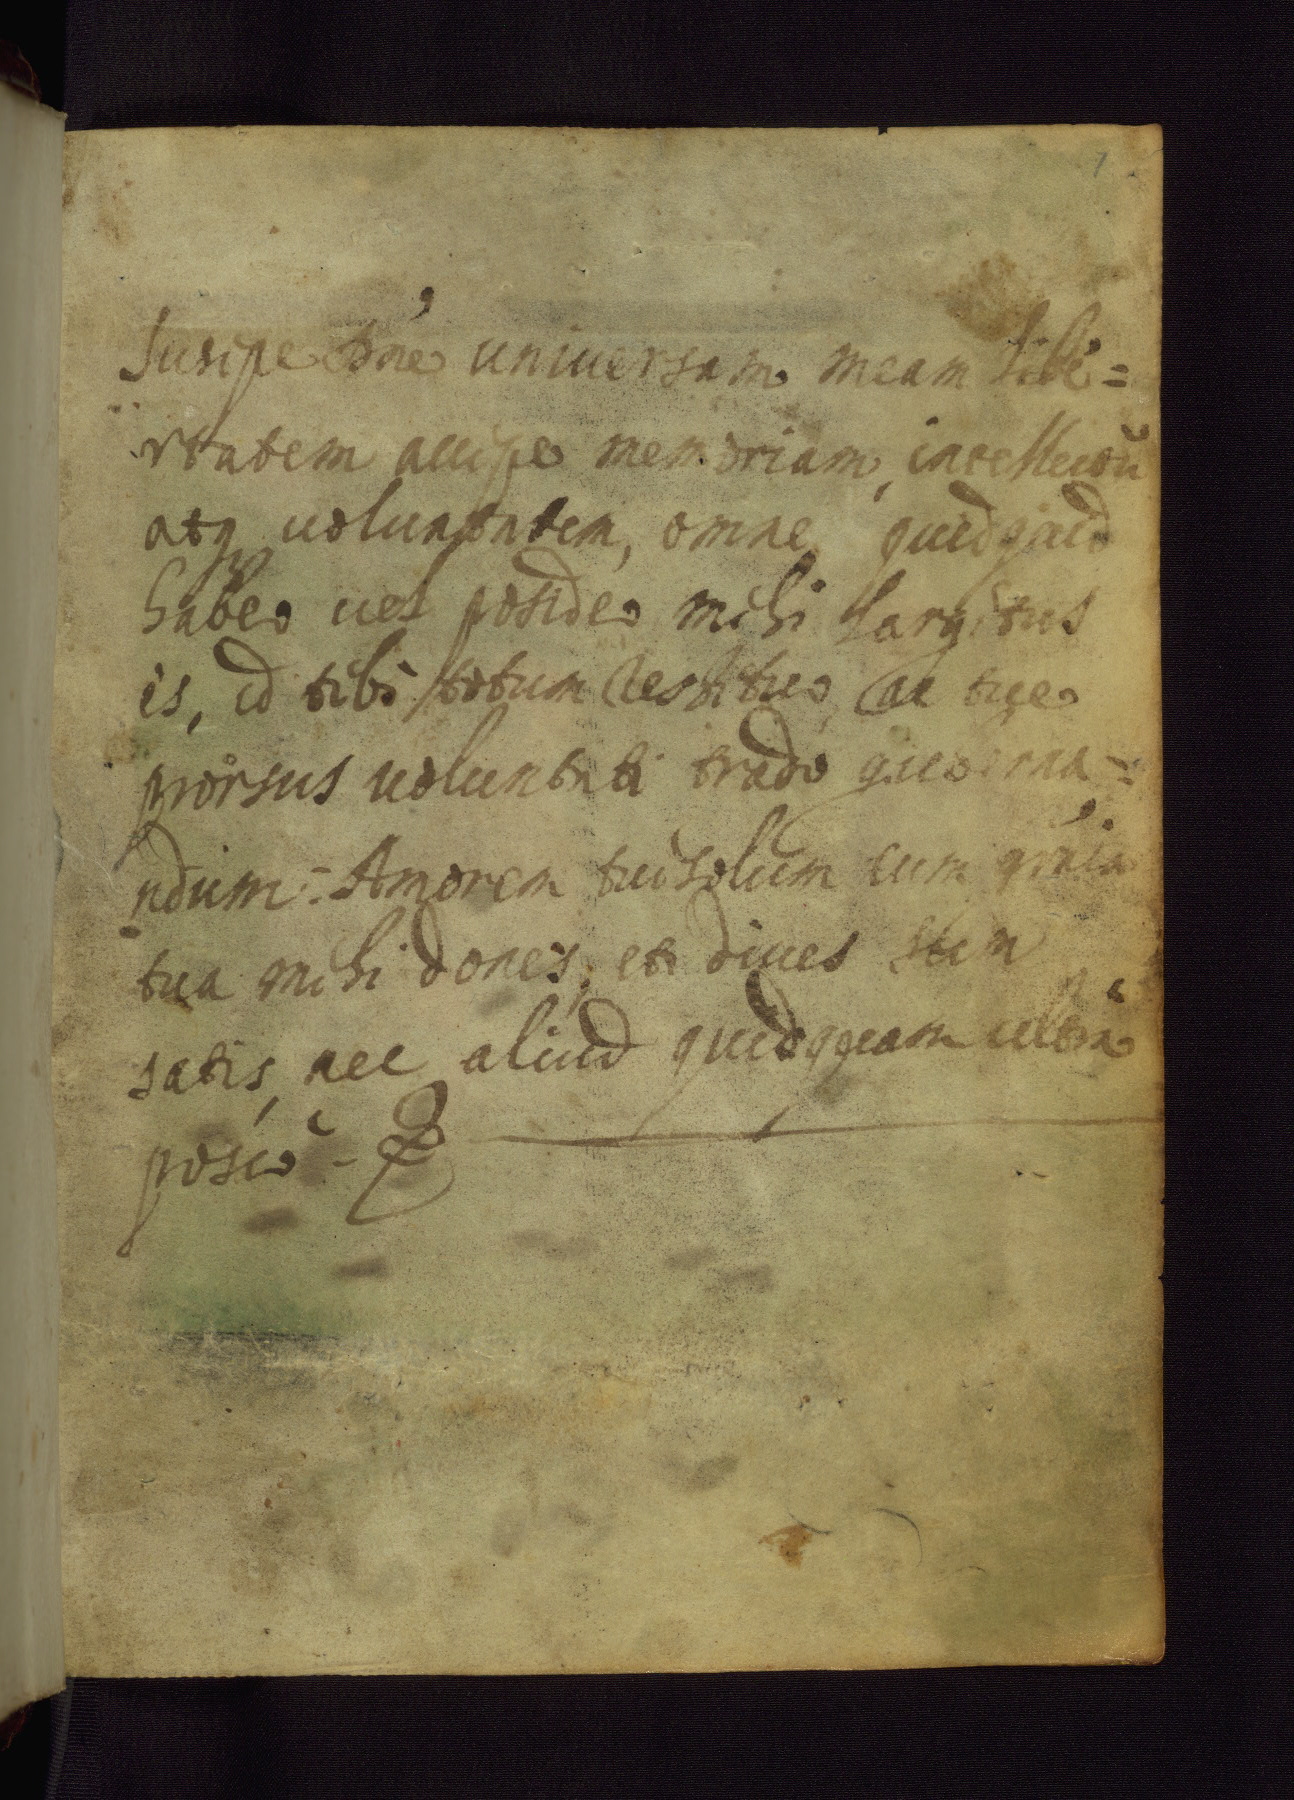 1
Susipe dn̄e universam meam libe=
rtatem accipe memoriam, intellectū
atq uoluntatem, omne quidquid
habeo uel posideo mihi largitus
es, id tibi totum restituo, ac tuae
prorsus uoluntati trado guberna=
ndum = Amorem tui solum cum grãia
tua mihi dones, et diues sum
satis, nec aliud quidquam ultra
posco -